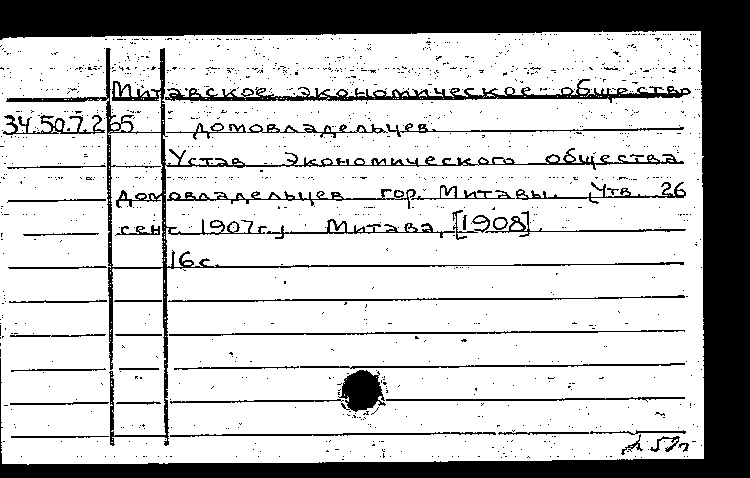 Митавское экономическое общество
34.50.7.265 домовладельцев.
Устав Экономического общества
домовладельцев гор. Митавы. [Утв. 26
сент. 1907г.] Митава, [1908].
16 с.